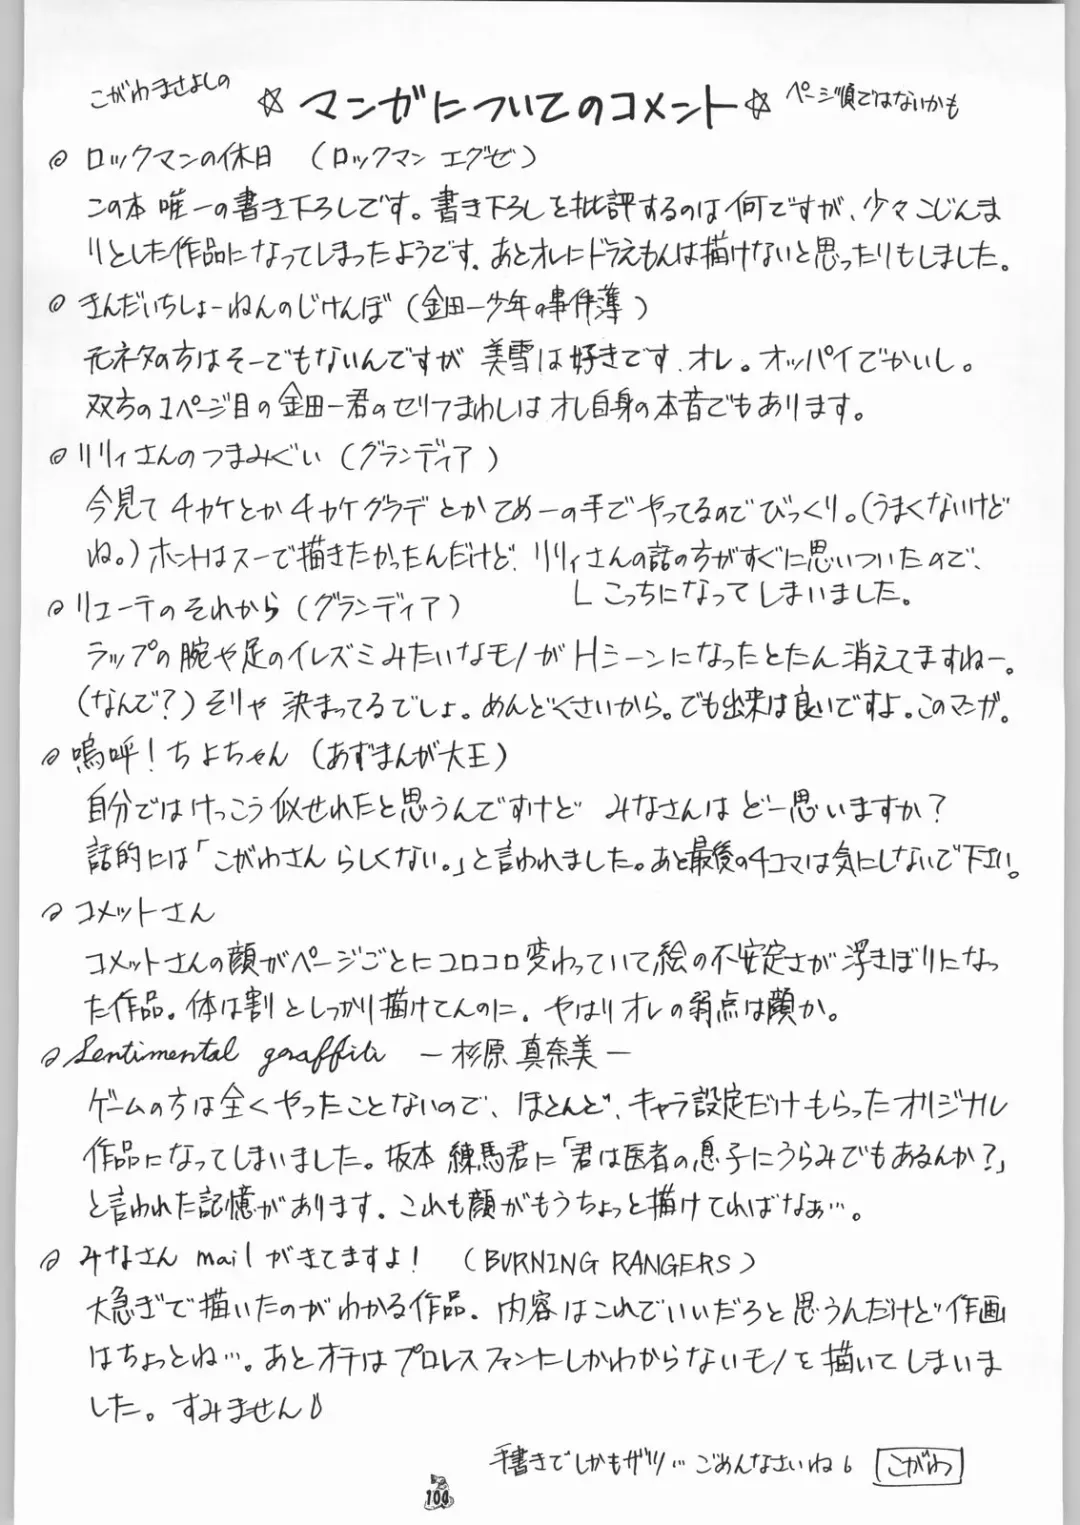 こがわまさよしの ☆マンガについてのコメント☆ ページ順ではないかも
◎ ロックマンの休日 (ロックマン エグゼ)
この本 唯一の書き下ろしです。書き下ろしを批評するのは何ですが、少々こじんま
りとした作品になってしまったようです。あとオレにドラえもんは描けないと思ったりもしました。
◎ きんだいちしょーねんのじけんぼ (金田一少年の事件簿)
元ネタの方はそーでもないんですが 美雪は好きです、オレ。オッパイでかいし。
双方の1ページ目の金田一君のセリフまわしはオレ自身の本音でもあります。
◎ リリィさんのつまみぐい (グランディア)
今見てチャケとかチャケグラデとかてめーの手でやってるのでびっくり。(うまくないけど
ね。)ホントはスーで描きたかったんだけど、リリィさんの話の方がすぐに思いついたので、
こっちになってしまいました。
◎ リエーテのそれから (グランディア)
ラップの腕や足のイレズミみたいなモノがHシーンになったとたん消えてますねー。
(なんで?)そりゃ 決まってるでしょ。めんどくさいから。でも出来は良いですよ。このマンガ。
◎ 嗚呼!ちよちゃん (あずまんが大王)
自分ではけっこう似せれたと思うんですけど みなさんはどー思いますか?
話的には「こがわさんらしくない。」と言われました。あと最後の4コマは気にしないで下さい。
◎ コメットさん
コメットさんの顔がページごとにコロコロ変わっていて絵の不安定さが浮きぼりになっ
た作品。体は割としっかり描けてんのに。やはりオレの弱点は顔か。
◎ Sentimental graffiti ー杉原 真奈美ー
ゲームの方は全くやったことないので、ほとんど、キャラ設定だけもらったオリジナル
作品になってしまいました。坂本 練馬君に「君は医者の息子にうらみでもあるんか?」
と言われた記憶があります。これも顔がもうちょっと描けてればなぁ…。
◎ みなさん mail がきてますよ! (BURNING RANGERS)
大急ぎで描いたのがわかる作品。内容はこれでいいだろと思うんだけど作画
はちょっとね…。あとオチはプロレスファンにしかわからないモノを描いてしまいま
した。すみません
手書きでしかもザツ… ごめんなさいね。 こがわ
104